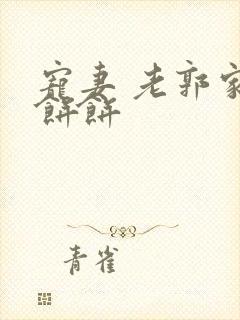 寵妻 老郭家
餅餅
青雀